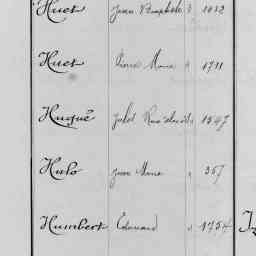 Huet Jean Baptiste 3 1012
Huet Pierre Marie " 1711
Huqué Jules 1547
Hulo Jean Marie " 357
Humbert Edouard " 1754